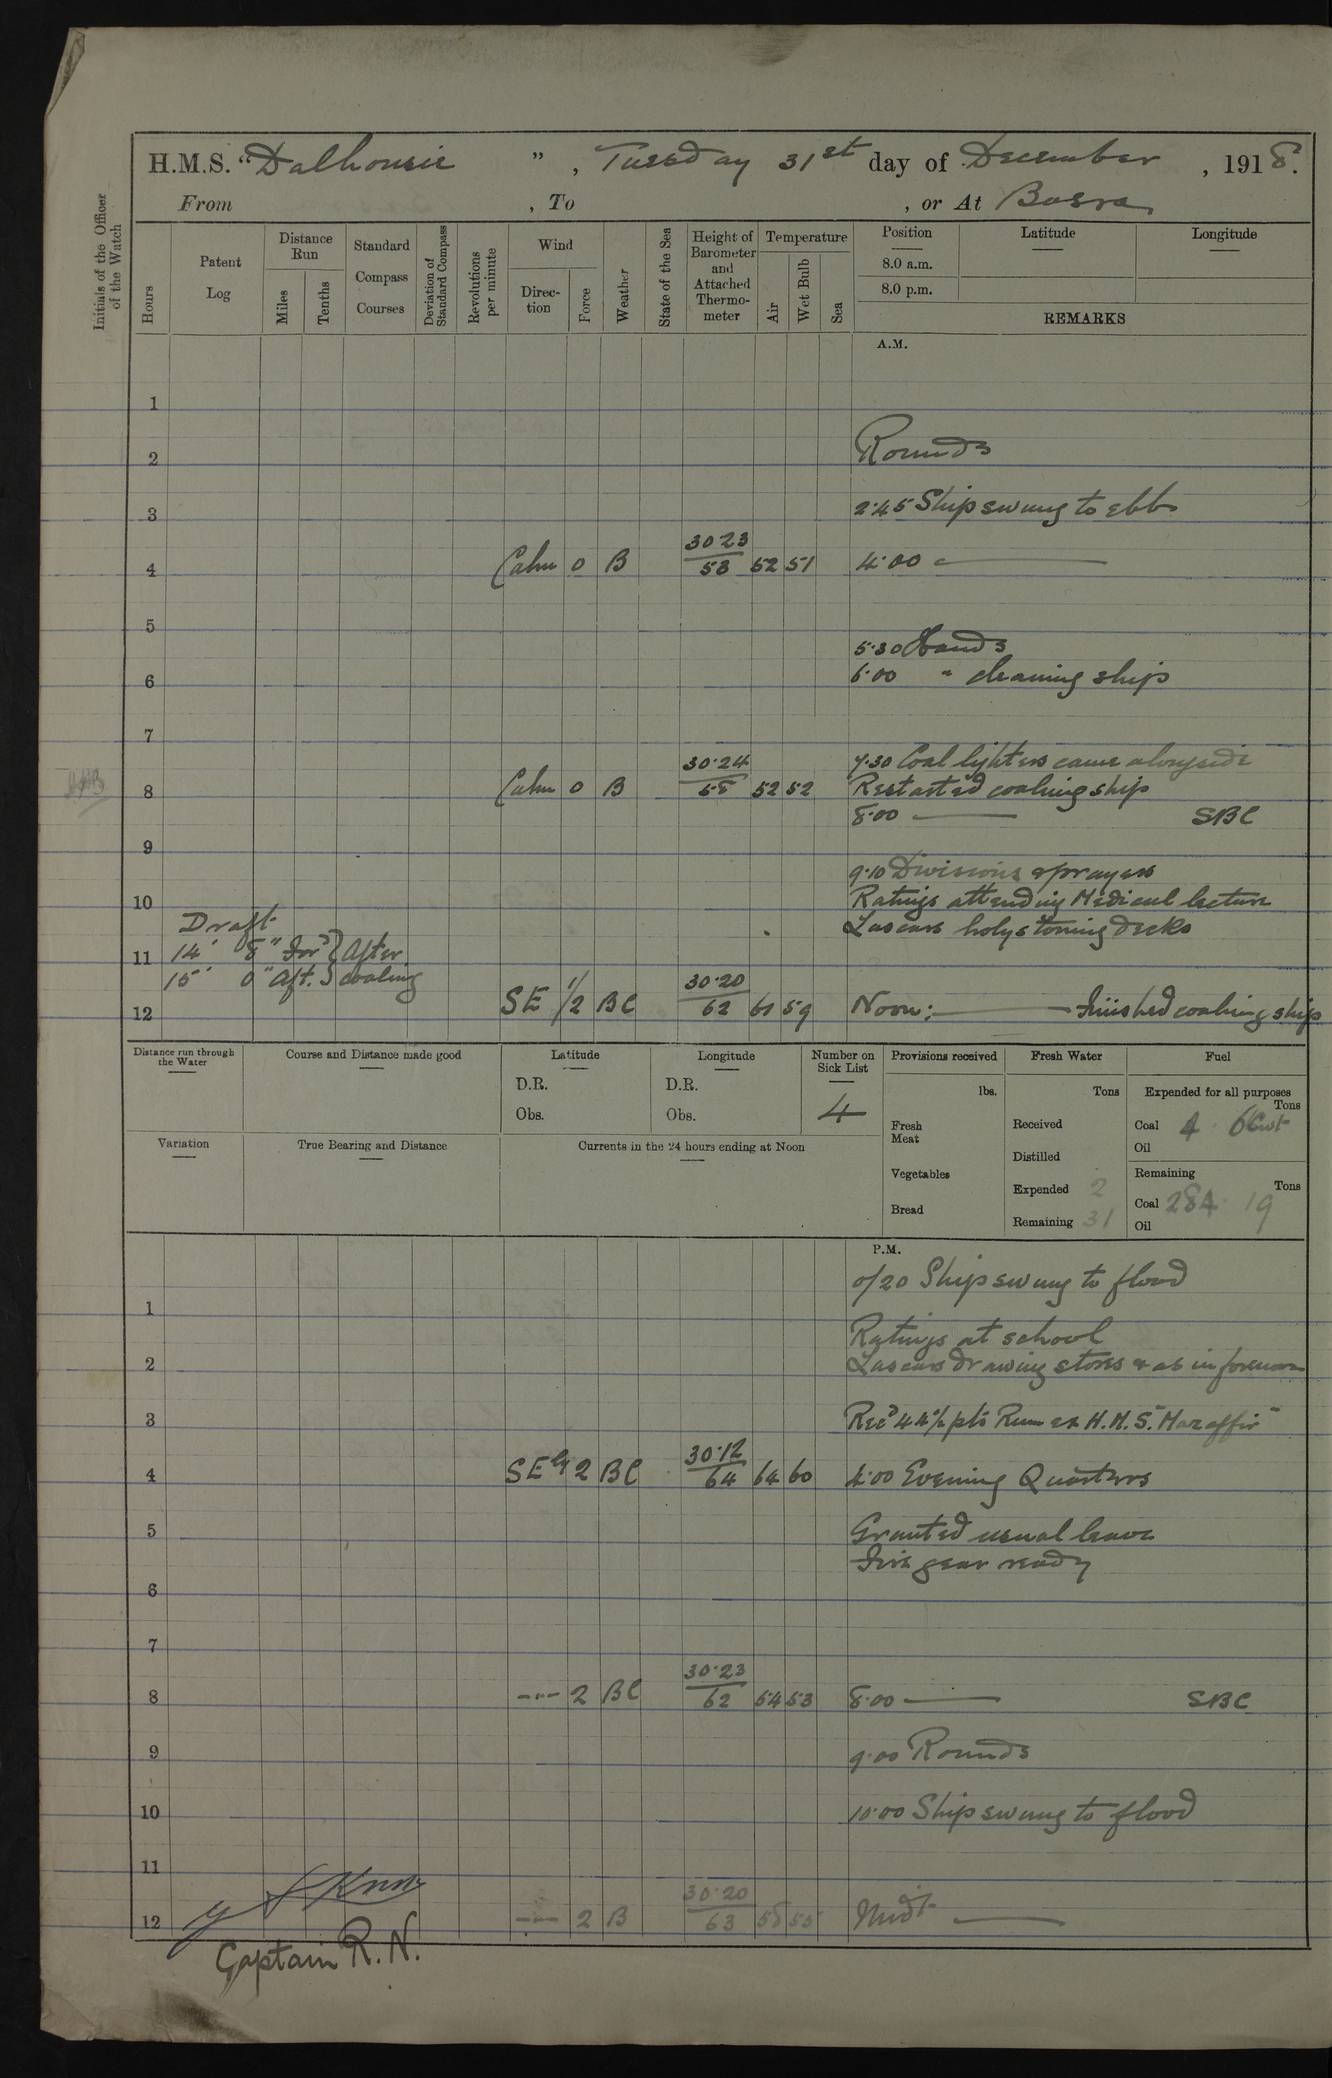 H.M.S. "Dalhousie", Tuesday 31st day of December, 1918.
From , To , or At Basra
Initials of the Officer of the Watch
Hours
Patent Log
Distance Run
Miles
Tenths
Standard Compass Courses
Deviation of Standard Compass
Revolutions per minute
Wind
Direction
Force
Weather
State of the Sea
Height of Barometer and Attached Thermometer
Temperature
Air
Wet Bulb
Sea
Position
Latitude
Longitude
8.0 a.m.
8.0 p.m.
REMARKS
A.M.
1
2 Rounds
3 2.45 Ship swung to ebb
4 Calm 0 B 30.23/58 52 51 4.00
5
5.30 Hands
6 6.00 " cleaning ship
7
7.30 Coal lighters came alongside
8 Calm 0 B 30.24/58 52 52 Restarted coaling ship
8.00 SBC
9
9.10 Divisions & prayers
10 Ratings attending Medical lecture
Draft
Lascars holystoning decks
11 14' 8" For'd } After
15' 0" Aft. } coaling
12 SE 1/2 BC 30.20/62 61 59 Noon: Finished coaling ship
Distance run through the Water
Course and Distance made good
Latitude
D.R.
Obs.
Longitude
D.R.
Obs.
Number on Sick List
4
Provisions received
lbs.
Fresh Meat
Vegetables
Bread
Fresh Water
Tons
Received
Distilled
Expended 2
Remaining 31
Fuel
Expended for all purposes
Tons
Coal 4 . 6 Cwt
Oil
Remaining
Tons
Coal 284 . 19
Oil
Variation
True Bearing and Distance
Currents in the 24 hours ending at Noon
P.M.
0/20 Ship swung to flood
1
Ratings at school
2 Lascars drawing stores & as in forenoon
3 Rec'd 44½ pts Rum ex H.M.S. "Mozaffir"
4 SE'ly 2 BC 30.12/64 64 60 4.00 Evening Quarters
5 Granted usual leave
Fire gear ready
6
7
8 -"- 2 BC 30.23/62 54 53 8.00 SBC
9 9.00 Rounds
10 10.00 Ship swung to flood
11
12 -"- 2 B 30.20/63 58 55 Midt
Captain R.N.